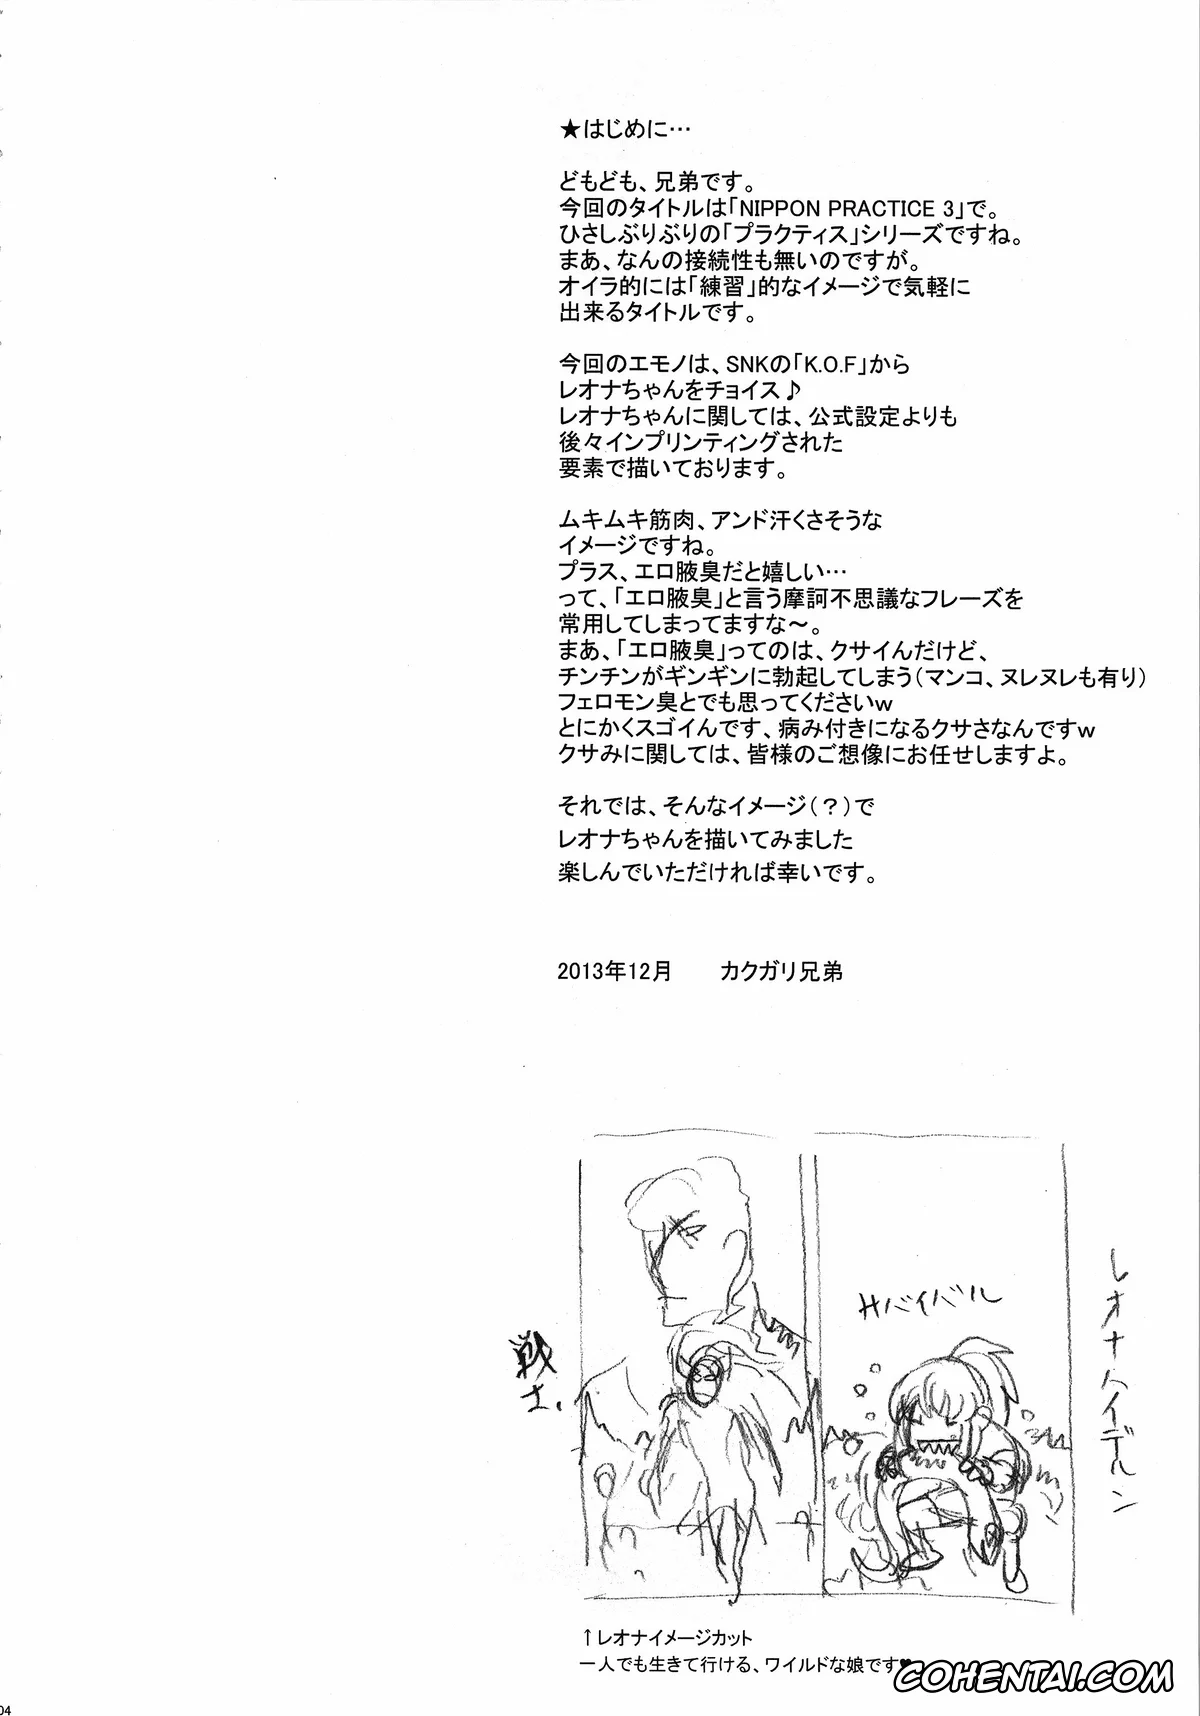 ★はじめに…
どもども、兄弟です。
今回のタイトルは「NIPPON PRACTICE 3」で。
ひさしぶりぶりの「プラクティス」シリーズですね。
まあ、なんの接続性も無いのですが。
オイラ的には「練習」的なイメージで気軽に
出来るタイトルです。
今回のエモノは、SNKの「K.O.F」から
レオナちゃんをチョイス♪
レオナちゃんに関しては、公式設定よりも
後々インプリンティングされた
要素で描いております。
ムキムキ筋肉、アンド汗くさそうな
イメージですね。
プラス、エロ腋臭だと嬉しい…
って、「エロ腋臭」と言う摩訶不思議なフレーズを
常用してしまってますな～。
まあ、「エロ腋臭」ってのは、クサイんだけど、
チンチンがギンギンに勃起してしまう(マンコ、ヌレヌレも有り)
フェロモン臭とでも思ってくださいw
とにかくスゴイんです、病み付きになるクサさなんですw
クサみに関しては、皆様のご想像にお任せしますよ。
それでは、そんなイメージ(？)で
レオナちゃんを描いてみました
楽しんでいただければ幸いです。
2013年12月　　カクガリ兄弟
レオナハイデルン
サバイバル
戦士.
↑レオナイメージカット
一人でも生きて行ける、ワイルドな娘です♥
COHENTAI.COM
04